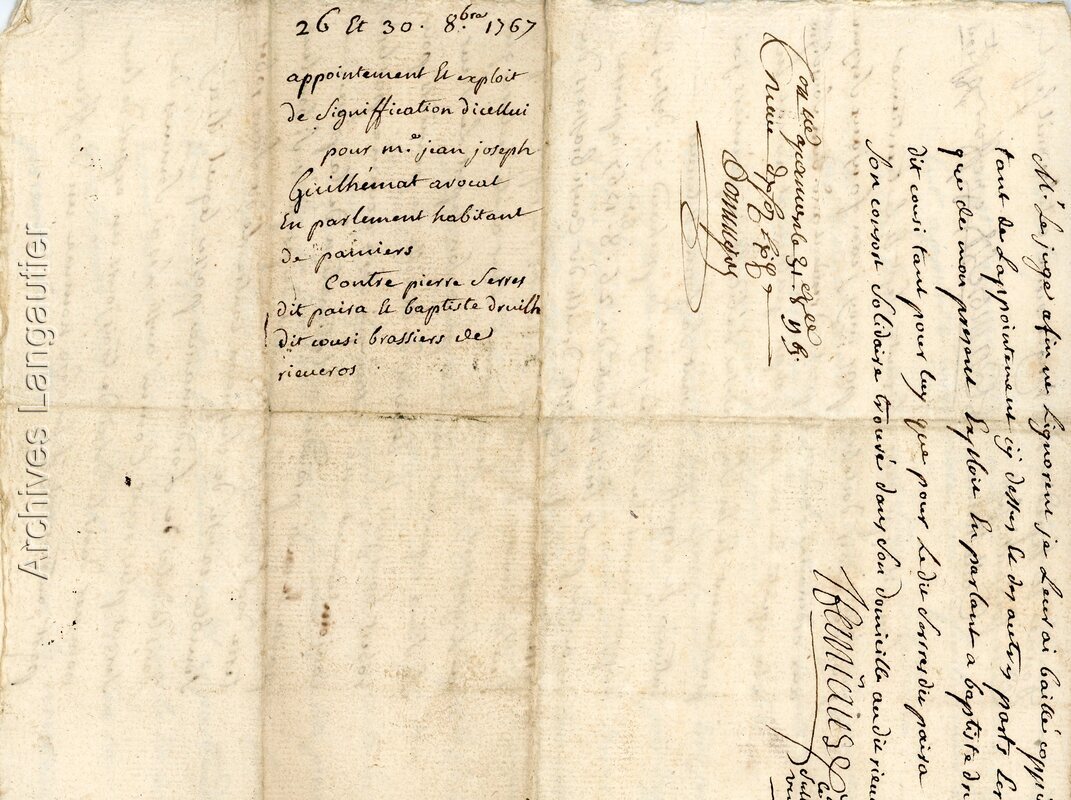 26 Et 30. 8.bre 1767
appointement Et exploit
de Signiffication dicellui
pour m.e jean joseph
Guilhémat avocat
En parlement habitant
de pamiers
Contre pierre Serres
dit paira Et baptiste druilh
dit cousi brassiers de
rieucros
M.r Le juge afin ne Lignorent je Leur ai baillé coppi
tant de Lappointement cy dessus Et des autres parts
que de mon present Exploit En parlant a baptiste dr
dit cousi tant pour luy que pour Le dit Serres dit paira
Son consort Solidaire trouvé dans Son domicille au dit rieu
Archives Langautier